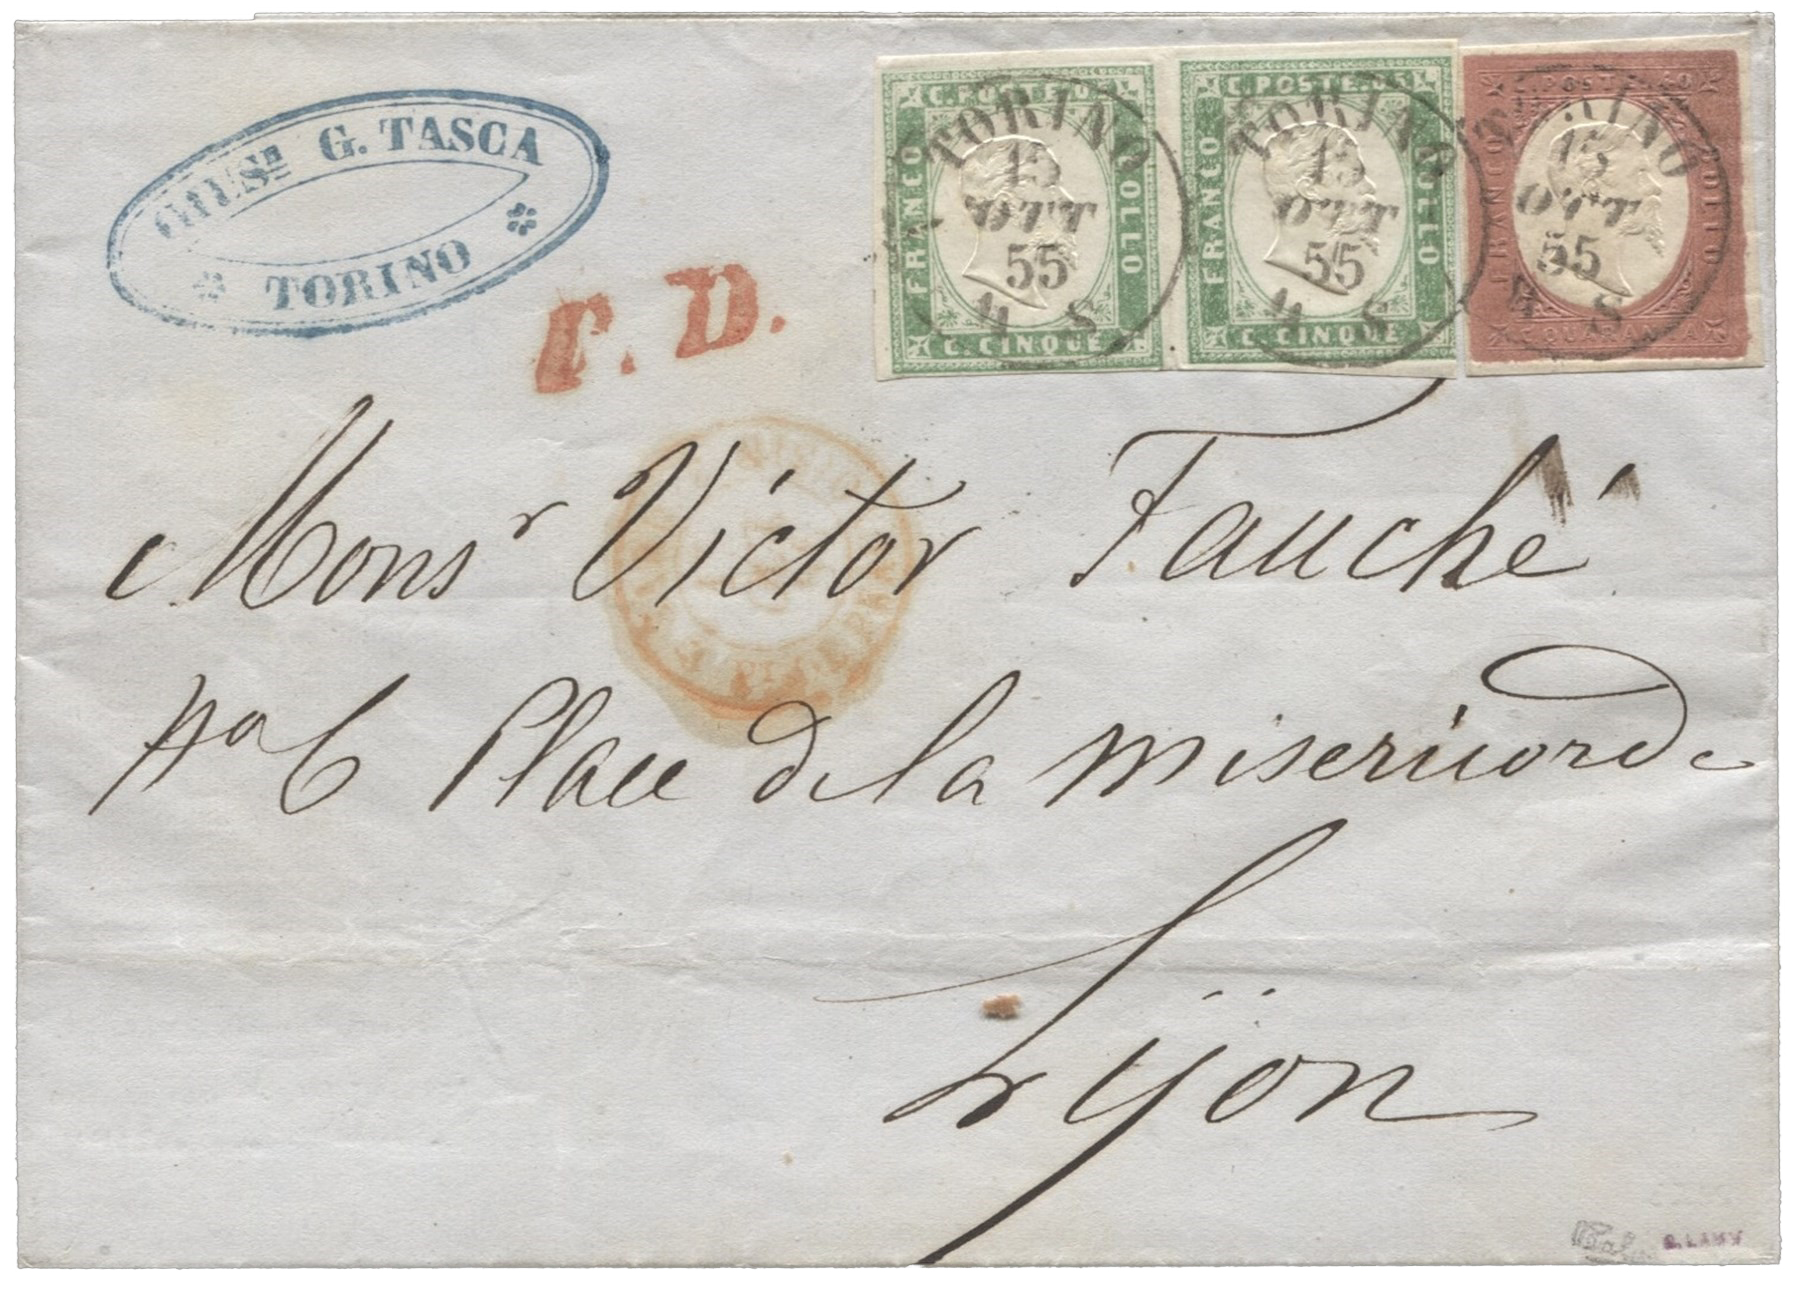 GIUSn G. TASCA
TORINO
P. D.
C. POSTE. 05
FRANCO
BOLLO
C. CINQUE
TORINO
15
OTT
55
4 S
C. POSTE. 05
FRANCO
BOLLO
C. CINQUE
TORINO
15
OTT
55
4 S
C. POSTE. 40
FRANCO
BOLLO
C. QUARANTA
TORINO
15
OTT
55
4 S
Monsr Victor Fauché
No 6 Place de la misericorde
Lÿon